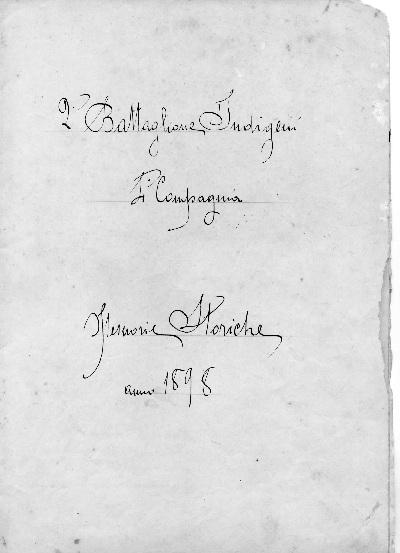 2° Battaglione Indigeni
1ª Compagnia
Memorie Storiche
anno 1898